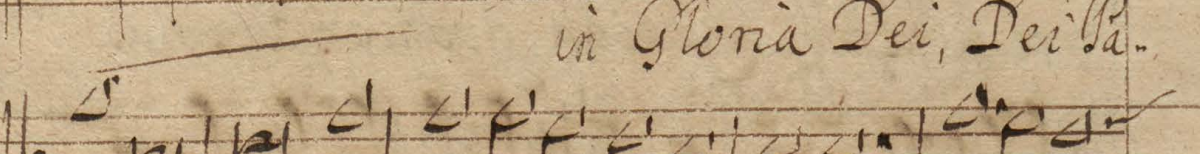 in Gloria Dei, Dei Pa..